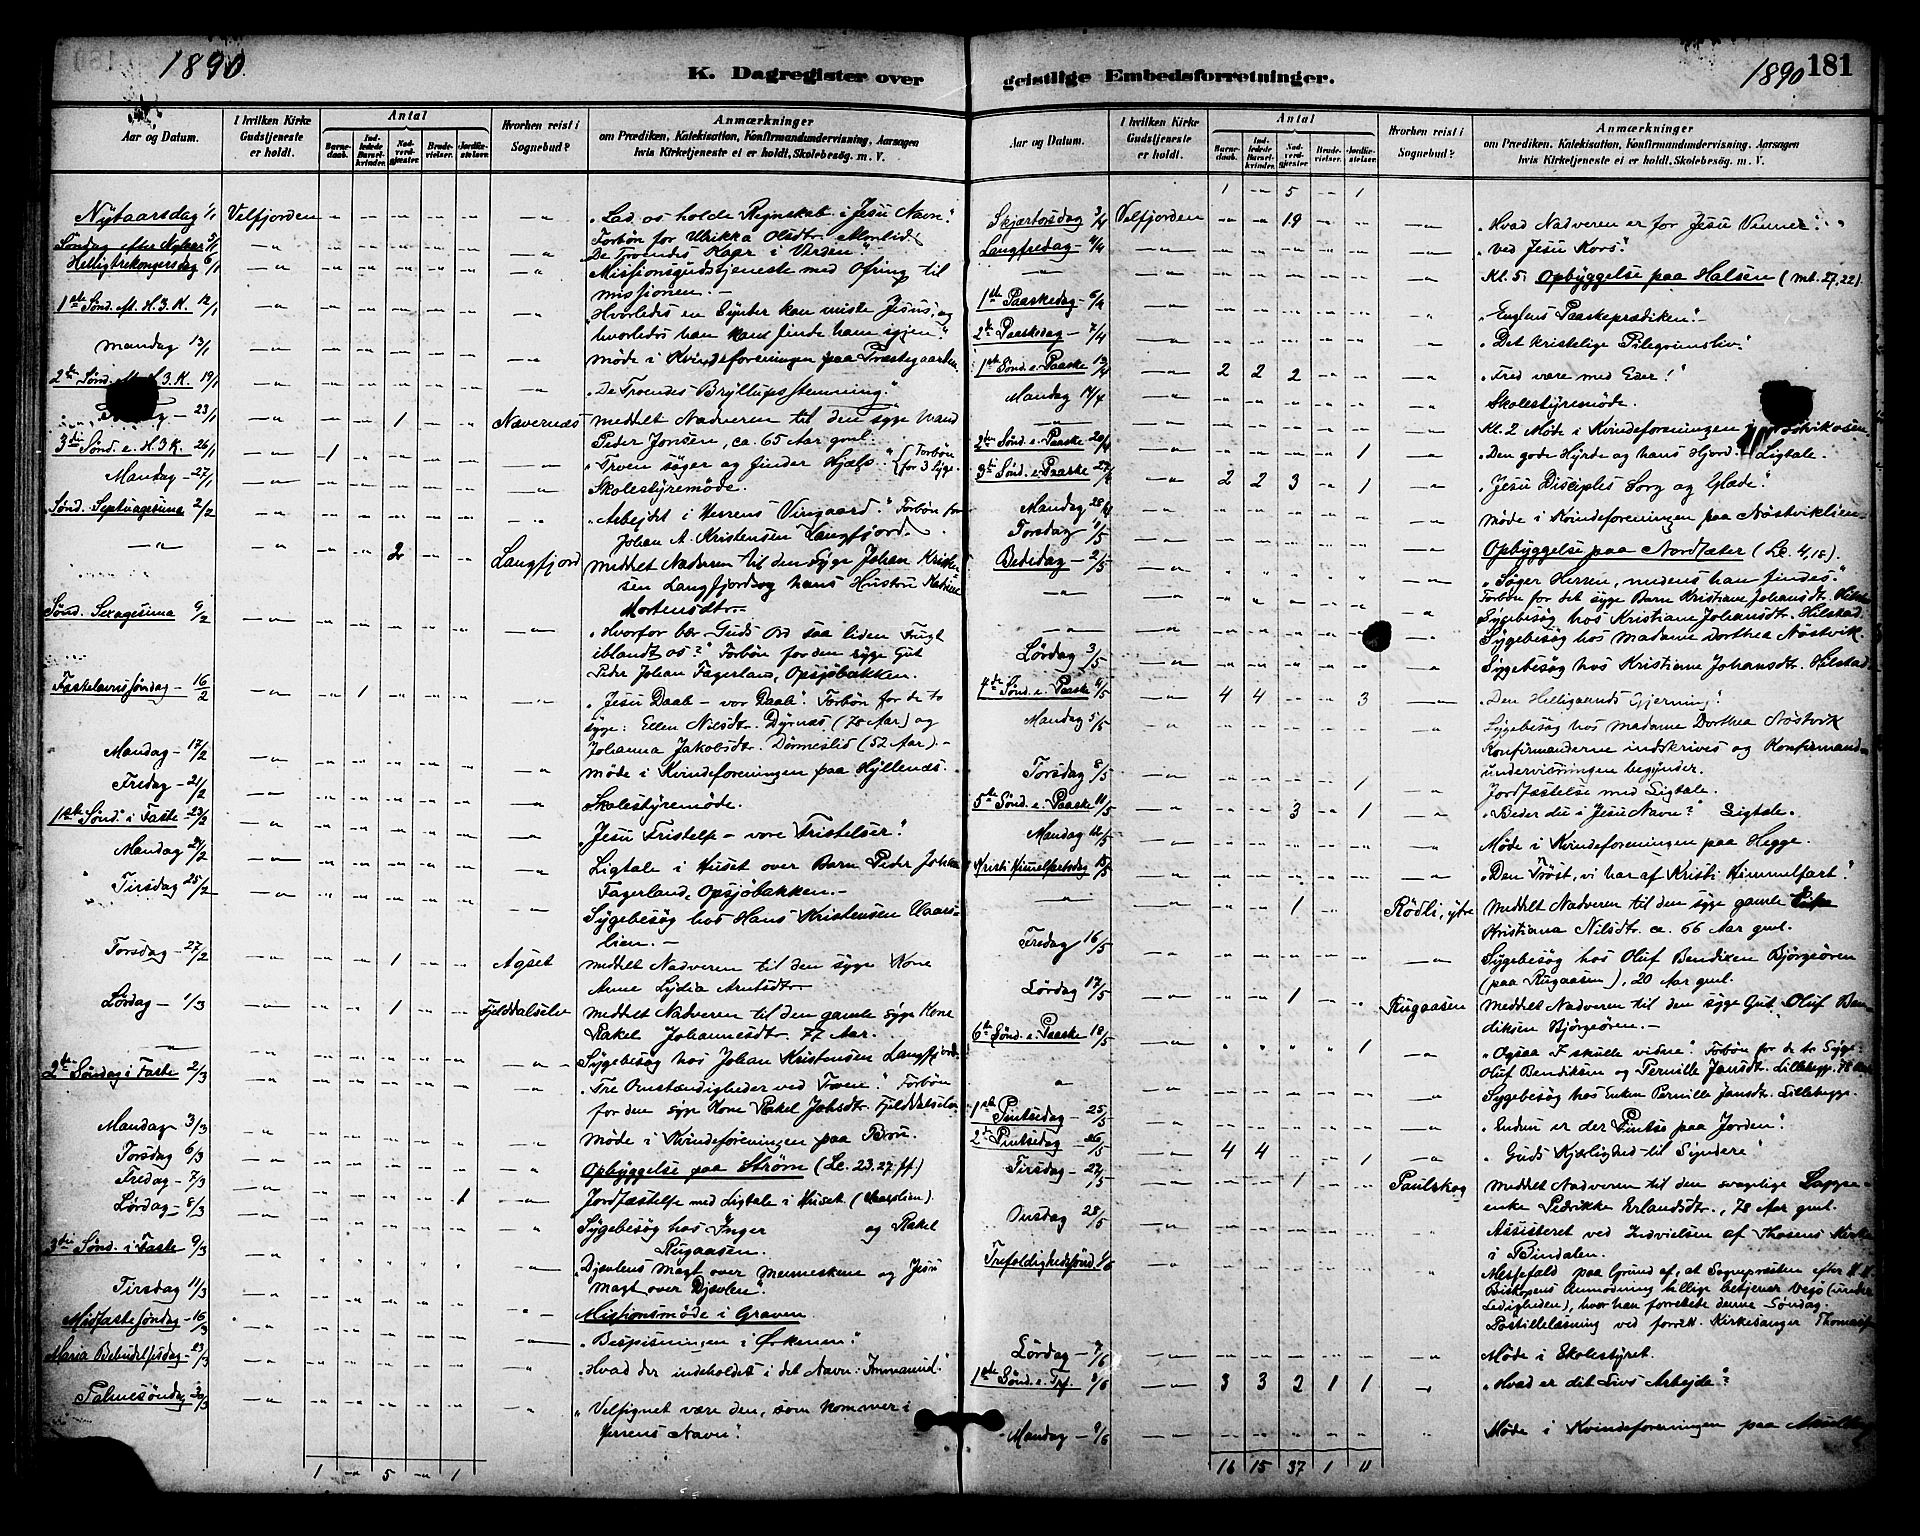 1890
K. Dagregister over
Aar og Datum.
I hvilken Kirke Gudstjeneste er holdt.
Antal
Barnedaab.
Indledede Barselkvinder.
Nadverdgjæster.
Brudevielser.
Jordfæstelser.
Hvorhen reist i Sognebud?
Anmærkninger
om Prædiken, Katekisation, Konfirmandundervisning, Aarsagen
hvis Kirketjeneste ei er holdt, Skolebesøg. m. V.
Nytaarsdag 1/1 Velfjorden " " " " " " „Lad os holde Regnskab i Jesu Navn."
Søndag efter Nytaar 5/1 Forbøn for Ulrikka Olsdtr.
Helligtrekongersdag 6/1 Missionsgudstjeneste med Ofring til
missionen.
1ste Sønd. eft. H.3.K. 12/1 „Hvorledes en Synder kan miste Jesus, og
hvorledes han kan finde ham igjen."
Mandag 13/1 Møde i Kvindeforeningen paa Præstegaarden
2den Sønd. eft. H.3.K. 19/1 „De Troendes Bryllupsstemning."
23/1 1 Navernæs meddelt Nadveren til den syge Mand
Peder Jonsen, ca. 65 Aar gml.
3die Sønd. e. H.3K. 26/1 1 „Troen søger og finder Hjælp." Forbøn for 3 syge.
Mandag 27/1 Skolestyremøde.
Sønd. Septuagesima 2/2 „Arbeidet i Herrens Vingaard." Forbøn for
Johan A. Kristensen Langfjord.
2 Langfjord meddelt Nadveren til den syge Johan Kristensen
Langfjord og hans Hustru
Mortensdtr.
Sønd. Sexagesima 9/2 „Hvorfor bær Guds Ord saa liden Frugt
iblandt os?" Forbøn for den syge Gut
Peder Johan Fagerland, Opsjøbakken.
Fastelavnssøndag 16/2 1 „Jesu Daab – vor Daab." Forbøn for de to
syge: Ellen Nilsdtr. Dyrnæs (78 Aar) og
Johanna Jakobsdtr. Dørneslid (52 Aar).
Mandag 17/2 Møde i Kvindeforeningen paa Hyllenæs.
Fredag 21/2 Skolestyremøde.
1ste Sønd. i Faste 23/2 „Jesu Fristelse – vore Fristelser."
Mandag 24/2 Ligtale i Huset over Barn Peder Johan
Fagerland, Opsjøbakken.
Tirsdag 25/2 Sygebesøg hos Hans Kristensen
lien.
Torsdag 27/2 1 Agset meddelt Nadveren til den syge Kone
Anne Lydia Arntsdtr.
Lørdag 1/3 1 Fjelddalselv meddelt Nadveren til den gamle syge Kone
Rakel Johannesdtr. 77 Aar.
Sygebesøg hos Johan Kristensen Langfjord.
2den Søndag i Faste 2/3 „Tre Omstændigheder ved Troen." Forbøn
for den syge Kone Rakel Johsdtr. Fjelddalselv
Mandag 3/3 Møde i Kvindeforeningen paa Bru.
Torsdag 6/3 Opbyggelse paa Strøm (Lc. 23.27 ff)
Fredag 7/3 1 Jordfæstelse med Ligtale i Huset
Lørdag 8/3 Sygebesøg hos Inger og Rakel
Rugaasen.
3die Sønd. i Faste 9/3 „Djævlens Magt over Menneskene og Jesu
Magt over Djævlen."
Tirsdag 11/3 Missionsmøde i Graven
Midfastesøndag 16/3 „Bespisningen i Ørkenen."
Maria Bebudelsesdag 23/3 „Hvad der indeholdes i det Navn: Immanuel."
Palmesøndag 30/3 „Velsignet være den, som kommer i
Herrens Navn".
1 " 5 " 1
geistlige Embedsforretninger.
1890
181
Aar og Datum.
I hvilken Kirke Gudstjeneste er holdt.
Antal
Barnedaab.
Indledede Barselkvinder.
Nadverdgjæster.
Brudevielser.
Jordfæstelser.
Hvorhen reist i Sognebud?
Anmærkninger
om Prædiken, Katekisation, Konfirmandundervisning, Aarsagen
hvis Kirketjeneste ei er holdt, Skolebesøg. m. V.
1 " 5 " 1
Skjærtorsdag 3/4 Velfjorden " " 19 " " „Hvad Nadveren er for Jesu Venner."
Langfredag 4/4 „Ved Jesu Kors".
Kl. 5: Opbyggelse paa Halsen (Mt. 27,22).
1ste Paaskedag 6/4 „Englens Paaskeprædiken".
2den Paaskedag 7/4 „Det kristelige Pilegrimsliv."
1ste Sønd. e. Paaske 13/4 2 2 2 „Fred være med Eder!"
Mandag 14/4 Skolestyremøde.
Kl. 2 Møde i Kvindeforeningen
2den Sønd. e. Paaske 20/4 1 „Den gode Hyrde og hans Hjord." Ligtale.
3die Sønd. e. Paaske 27/4 2 2 3 1 „Jesu Disciples Sorg og Glæde."
Mandag 28/4 Møde i Kvindeforeningen paa Nøstviklien
Torsdag 1/5 Opbyggelse paa Nordsæter (Lc. 4,18).
Bededag 2/5 „Søger Herren, medens han findes."
Forbøn for det syge Barn Kristiane Johansdt.
Sygebesøg hos Kristiane Johansdt. Hilstad.
Sygebesøg hos Madame Dorthea Nøstvik.
Lørdag 3/5 Sygebesøg hos Kristiane Johansdt. Hilstad
4de Sønd. e. Paaske 4/5 4 4 3 „Den Helligaands Gjerning."
Mandag 5/5 Sygebesøg hos Madame Dorthea Nøstvik
Konfirmanderne indskrives og Konfirmand-
undervisningen begynder.
Torsdag 8/5 1 Jordfæstelse med Ligtale.
5te Sønd. e. Paaske 11/5 3 1 „Beder du i Jesu Navn?" Ligtale.
Mandag 12/5 Møde i Kvindeforeningen paa Hegge.
Kristi Himmelfartsdag 15/5 „Den Trøst, vi har af Kristi Himmelfart."
1 Rødli, ytre meddelt Nadveren til den syge gamle
Kristiana Nilsdtr. ca. 66 Aar gml.
Fredag 16/5 Sygebesøg hos Oluf Bendiksen Bjørgeøren
(paa Rugaasen), 20 Aar gml.
Lørdag 17/5 1 Rugaasen meddelt Nadveren til den syge Gut Oluf Ben-
diksen Bjørgeøren.
6te Sønd. e. Paaske 18/5 1 „Ogsaa I skulle vidne". Forbøn for de to Syge:
Oluf Bendiksen og Pernille Jansdt. Lillebygg.
Sygebesøg hos Enken Pernille Jansdt. Lillebygge.
1ste Pintsedag 25/5 „Enden er der Pintse paa Jorden".
2den Pintsedag 26/5 4 4 1 „Guds Kjærlighed til Syndere"
Tirsdag 27/5 1 Paulskog meddelt Nadveren til den svagelige Lappe-
enke Pedrikke Erlandsdt., 78 Aar gml.
Onsdag 28/5 Assisteret ved Indvielsen af Thosens Kirke
i Bindalen.
Trefoldighedssønd. 1/6 Messefald paa Grund af, at Sognepræsten efter
Biskopens Anmodning tillige betjener Vegø (under
Ledigheden), hvor han forrettede denne Søndag.
Postillelæsning ved forrett. Kirkesanger
Lørdag 7/6 Møde i Skolestyret.
1ste Sønd. e. Tref. 8/6 3 3 2 1 1 „Hvad er dit Livs Arbejde?"
Mandag 9/6 Møde i Kvindeforeningen paa
16 15 37 1 11